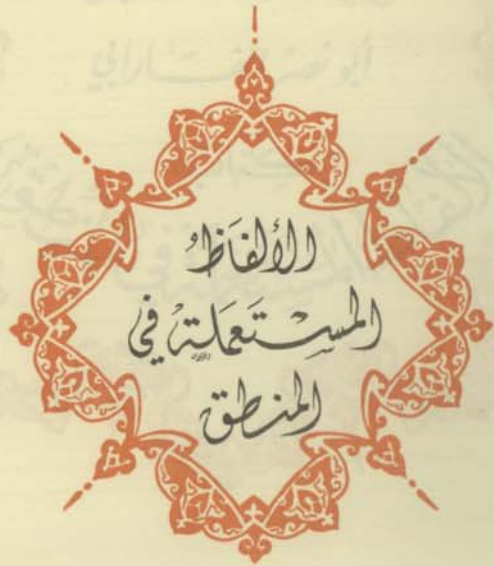 الألفَاظُ
المستَعمَلة في
المنطق